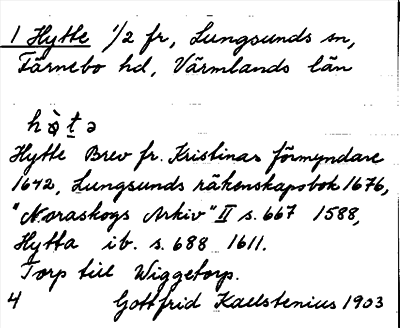 1 Hytte 1/2 fr, Lungsunds sn,
Färnebo hd, Värmlands län
Hytte Brev fr. Kristinas förmyndare
1642, Lungsunds räkenskapsbok 1676,
"Noraskogs Arkiv" II s. 667 1588,
Hytta ib. s. 688 1611.
Torp till Wiggetorp.
4 Gottfrid Kallstenius 1903